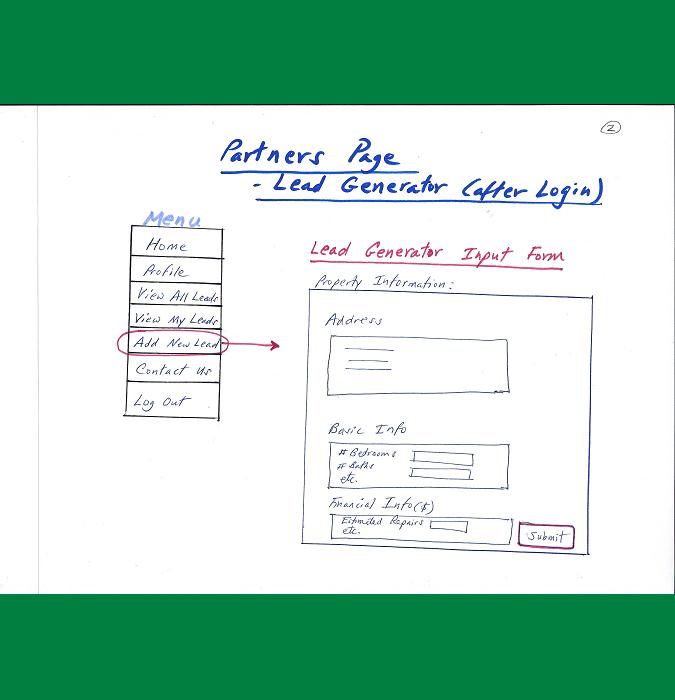 2
Partners Page
- Lead Generator (after Login)
Menu
Home
Profile
View All Leads
View My Leads
Add New Lead
Contact Us
Log Out
Lead Generator Input Form
Property Information:
Address
Basic Info
# Bedrooms
# Baths
etc.
Financial Info($)
Estimated Repairs
etc.
Submit